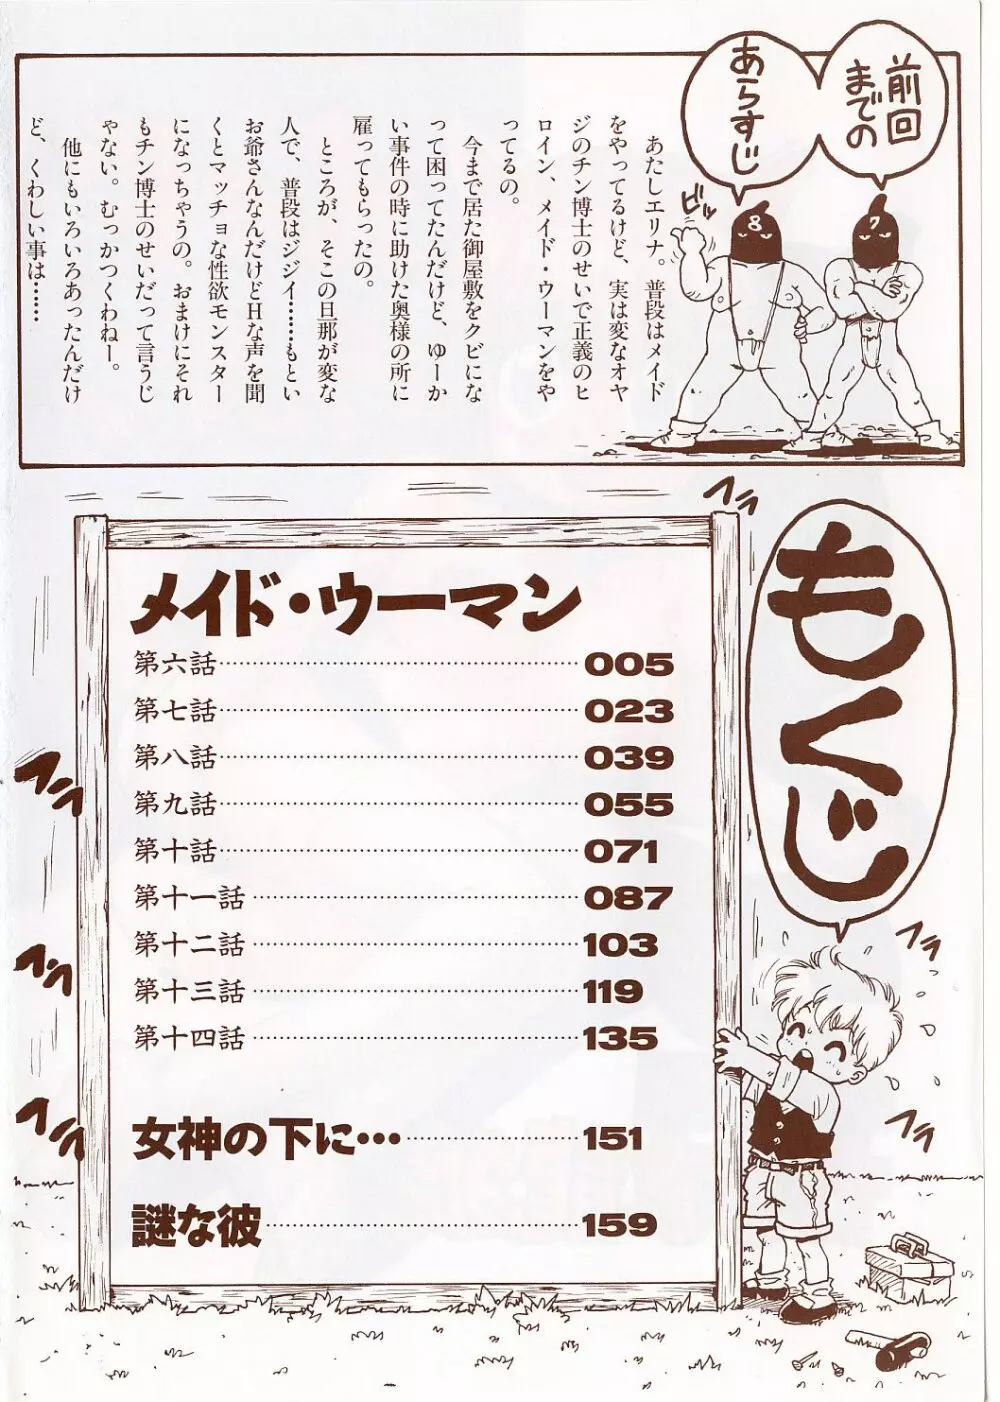 前回
までの
あらすじ
8
7
ビッ
あたしエリナ。普段はメイド
をやってるけど、実は変なオヤ
ジのチン博士のせいで正義のヒ
ロイン、メイド・ウーマンをや
ってるの。
今まで居た御屋敷をクビにな
って困ってたんだけど、ゆーか
い事件の時に助けた奥様の所に
雇ってもらったの。
ところが、そこの旦那が変な
人で、普段はジジイ……もとい
お爺さんなんだけどHな声を聞
くとマッチョな性欲モンスター
になっちゃうの。おまけにそれ
もチン博士のせいだって言うじ
ゃない。むっかつくわねー。
他にもいろいろあったんだけ
ど、くわしい事は……
もくじ
メイド・ウーマン
第六話……005
第七話……023
第八話……039
第九話……055
第十話……071
第十一話……087
第十二話……103
第十三話……119
第十四話……135
女神の下に………151
謎な彼……159
フラ
フラ
フラ
フラ
フラ
フラ